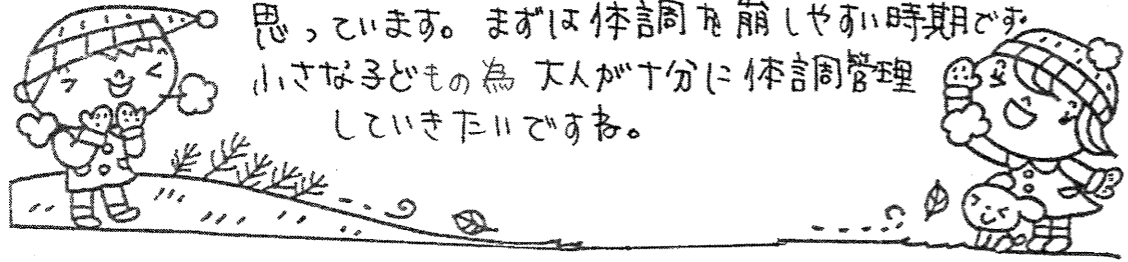 思っています。まずは体調を崩しやすい時期です
小さな子どもの為 大人が十分に体調管理
していきたいですね。